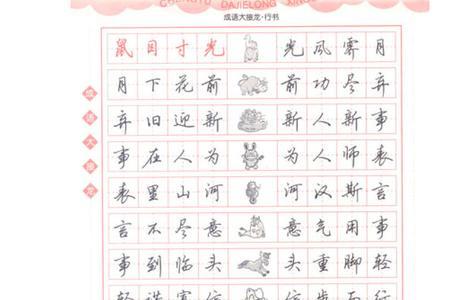 CHENGYU DAJIELONG
成语大接龙·行书
鼠目寸光 光风霁月
月下花前 前功尽弃
弃旧迎新 新人新事
事在人为 为人师表
表里山河 河汉斯言
言不尽意 意气用事
事到临头 头重脚轻
成语大接龙